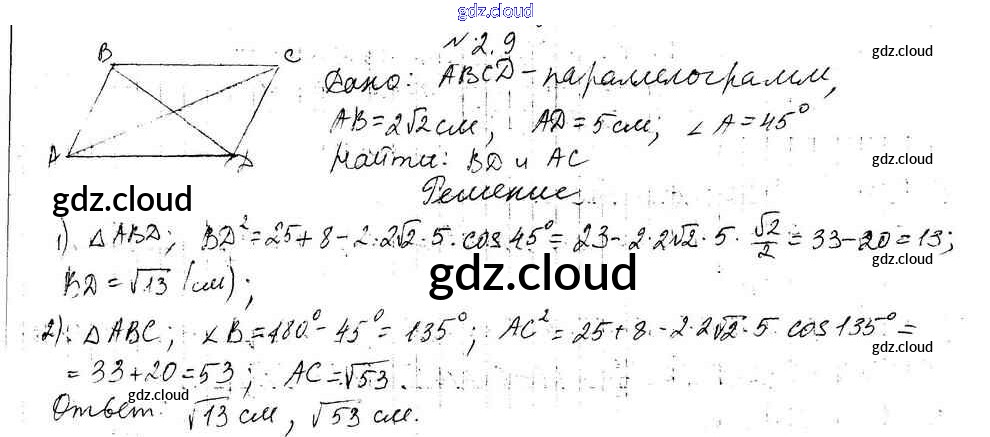 gdz.cloud
N 2.9
gdz.cloud
B C
A D
Дано: ABCD - параллелограмм,
AB = 2√2 см; AD = 5 см; ∠A = 45°
Найти: BD и AC
gdz.cloud
gdz.cloud
Решение
1) △ABD; BD² = 25 + 8 - 2·2√2·5·cos 45° = 23 - 2·2√2·5·√2/2 = 33 - 20 = 13;
gdz.cloud
BD = √13 (см);
gdz.cloud
2) △ABC; ∠B = 180° - 45° = 135°; AC² = 25 + 8 - 2·2√2·5 cos 135° =
gdz.cloud
= 33 + 20 = 53; AC = √53.
gdz.cloud
Ответ: √13 см, √53 см.
gdz.cloud